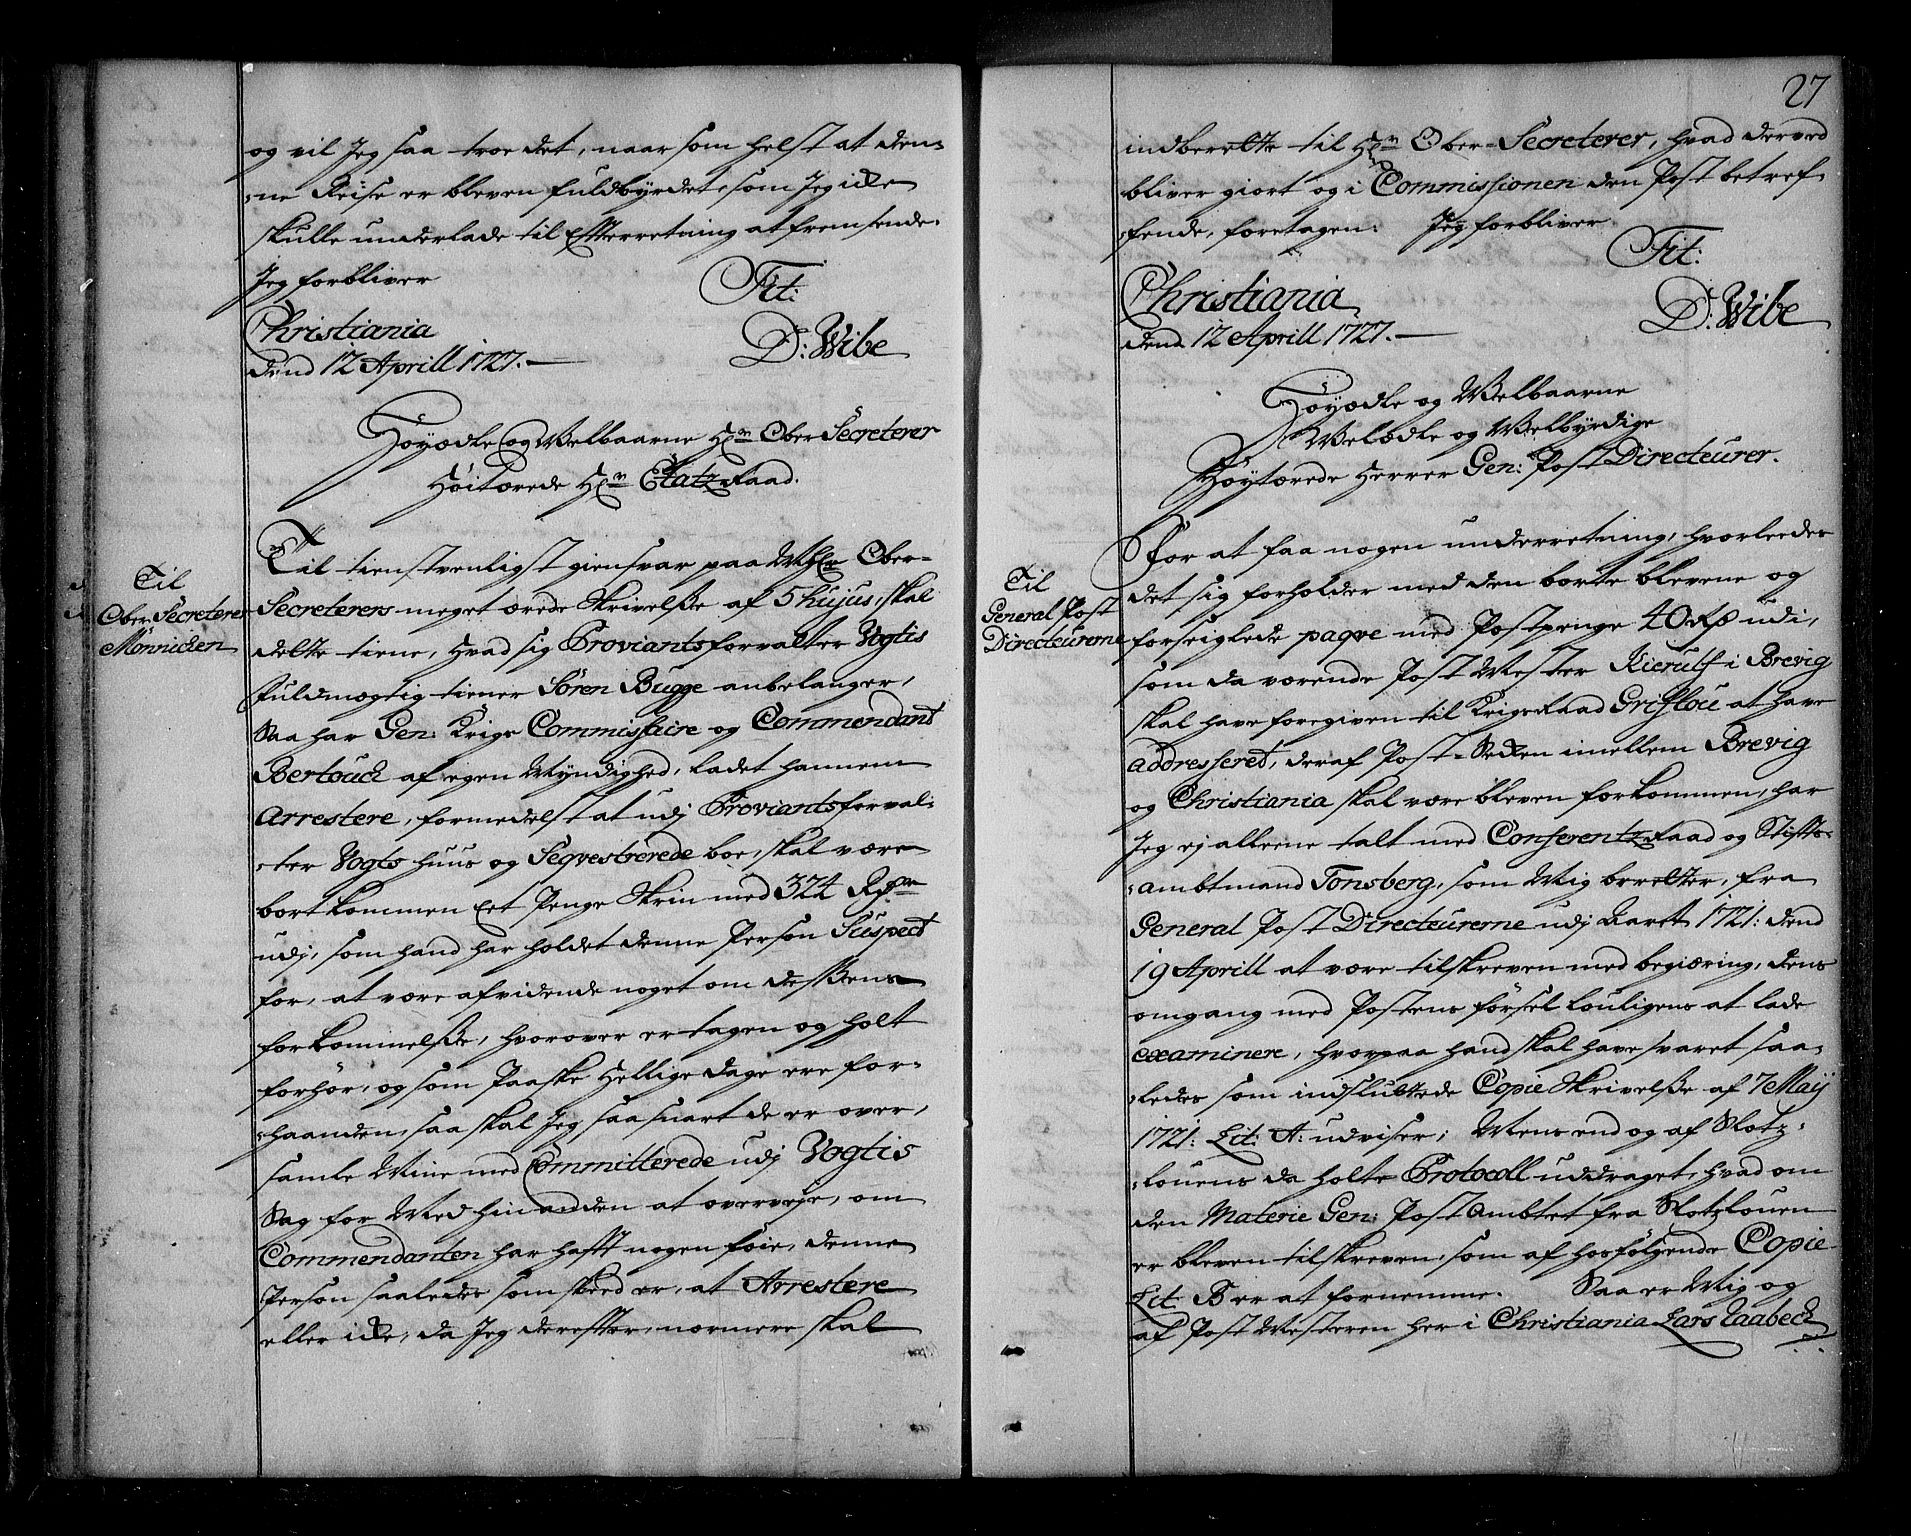 og vil Jeg saa troe det, naar som helst at den-
ne Reise er bleven fuldbyrdet, som Jeg icke
skulle underlade til Efterretning at fremsende.
Jeg forbliver
Tit:
Christiania
dend 12 Aprill 1727.
D: Wibe
Høyædle og Welbaarne Hr Ober Secreterer
Høitærede Hr Etatz Raad.
Til
Ober Secreterer
Mönnichen
Til tienstvenligst giensvar paa Mhr Ober-
Secreterers meget ærede Skrivelße af 5 hujus, skal
dette tiene, Hvad sig Proviantsforvalter Vogtis
fuldmægtig tiener Søren Bugge anbelanger,
Saa har Gen: Krigs Commissaire og Commendant
Bertouch af egen Myndighed, ladet hannem
Arrestere, formedelst at udj Proviantsforval-
ter Vogts huus og Seqvestrerede boe, skal være
bortkommen Eet Penge Skrin med 324 Rdr
udj, som hand har holdet denne Person Suspect
for, at være afvidende noget om deßens
forkommelße, hvorover er tagen og holt
forhør, og som Paaske Hellige dage ere for-
haanden, saa skal Jeg saa snart de er over,
samle Mine med Committerede udj Vogtis
Sag for Med hinanden at overveje, om
Commendanten har hafft nogen føie, denne
Person saaledes som skeed er, at Arrestere
eller icke, da Jeg derefter nærmere skal
27
indberette til Hr Ober-Secreterer, hvad derved
bliver giort og i Commissionen den Post betref-
fende, foretagen. Jeg forbliver
Tit:
Christiania
dend 12 Aprill 1727.
D: Wibe
Høyædle og Welbaarne
Welædle og Welbyrdige
Høytærede Herrer Gen: Post Directeurer.
Til
General Post
Directeurerne
For at faa nogen underretning, hvorledes
det sig forholder med den borte blevene og
forseiglede paqve med Postpenge 40 Rd udi,
som da værende Post Mester Kierulf i Brevig
skal have foregiven til Krigs Raad Grifflou at have
addresseret, deraf Post-Secken imellem Brevig
og Christiania skal være bleven forkommen, har
Jeg ej alleene talt med Conferentz Raad og Stifts-
ambtmand Tonsberg, som Mig beretter, fra
General Post Directeurerne udj Aaret 1721: dend
19 Aprill at være tilskreven med begiæring, dens
omgang med Postens førsel louligens at lade
examinere, hvorpaa hand skal have svaret saa-
ledes som indsluttede Copie Skrivelße af 7 Maij
1721: Lit: A: udviser; Mens end og af Slotz-
louens da holte Protocoll uddraget, hvad om
den Materie Gen: Post Ambtet fra Slotzlouen
er bleven tilskreven, som af hosfølgende Copie
Lit. B er at fornemme. Saa er Mig og
af Post Mesteren her i Christiania Lars Vaabech